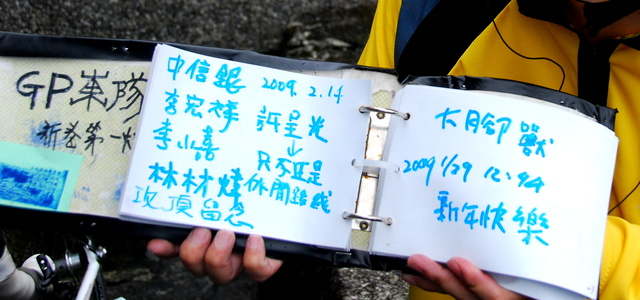 GP車隊
新登第一
中信銀 2009. 2.14
李宏祥 許呈光
李小嘉 ↓
林材煒 只不過是
休閒路線
攻頂留念
大腳獸
2009 1/29 12:94
新年快樂